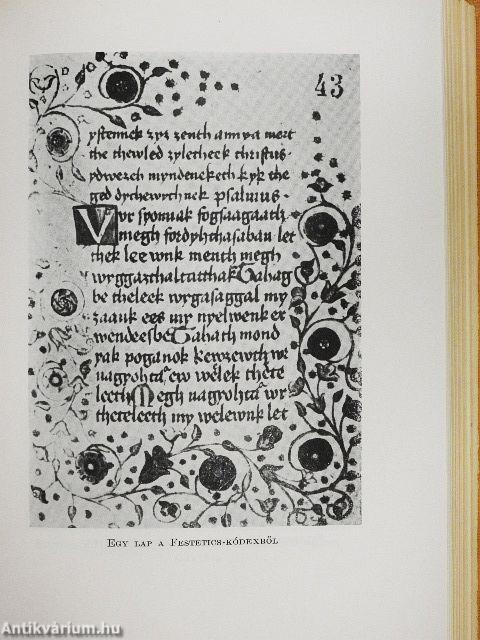 43
ystennek zyz zenth annya mert
the thewled zyletheek christus·
ydwezeh myndeneketh kyk the
ged dychewythnek psalmus·
Vr syonnak fogsaagaath
megh fordyhthasaban let
thek leewnk menth megh
wyggazthaltatthak Tahag
be theleek wygasaggal my
zaank ees my nyelwenk er
wendeesbe Tahath mond
yak poganok kewzewth we
nagyohta ew welek thete
leeth Megh nagyohta wr
theteleeth my welewnk let
EGY LAP A FESTETICS-KÓDEXBŐL
Antikvárium.hu